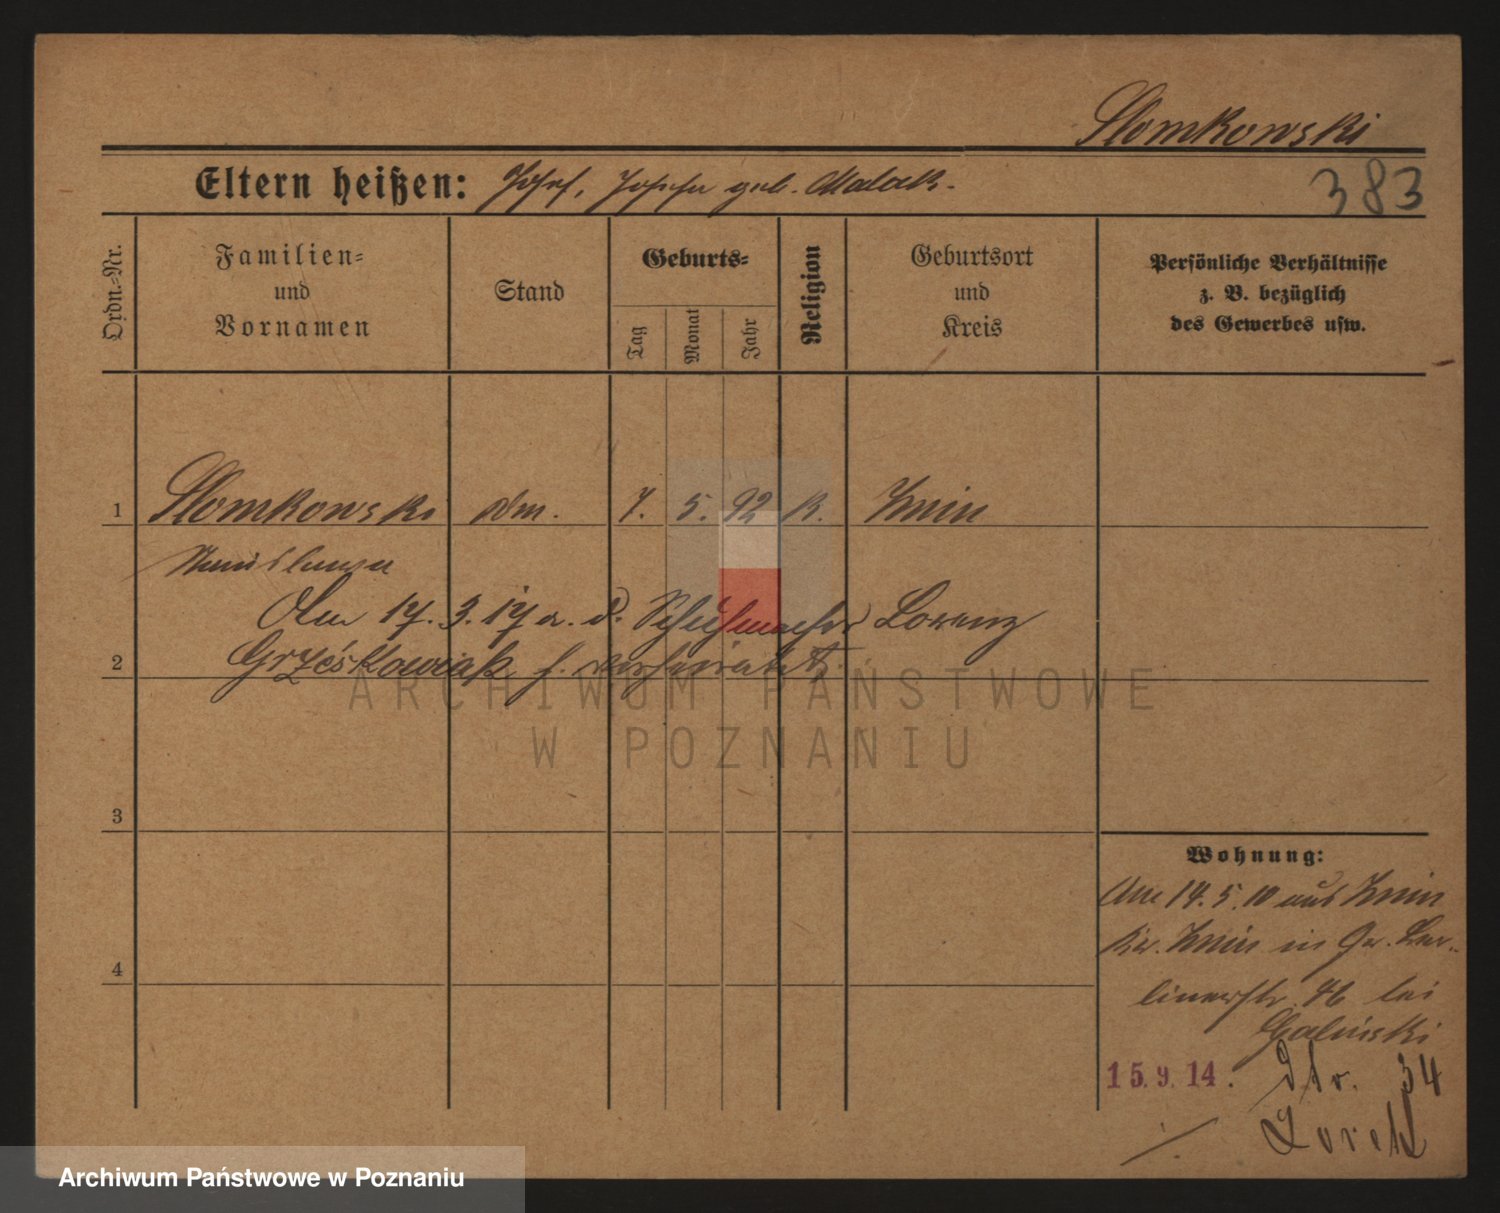 Slomkowski
Eltern heißen: Josef, Josefa geb. Malak.
383
Ordn.=Nr.
Familien=
und
Vornamen
Stand
Geburts=
Tag
Monat
Jahr
Religion
Geburtsort
und
Kreis
Persönliche Verhältnisse
z. B. bezüglich
des Gewerbes usw.
1 Slomkowski 7. 5. 92 k. Znin
Stanislawa
Am 17. 3. 17 a. d. Schuhmacher Lorenz
2 Grześkowiak h. verheiratet.
ARCHIWUM PAŃSTWOWE
W POZNANIU
3
4
Wohnung:
Am 14. 5. 10 aus Znin
Kr. Znin in Gr. Ber-
linerstr. 46 bei
Galinski
15.9.14. 34
Archiwum Państwowe w Poznaniu